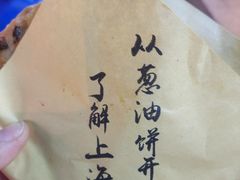 从葱油饼开
了解上海